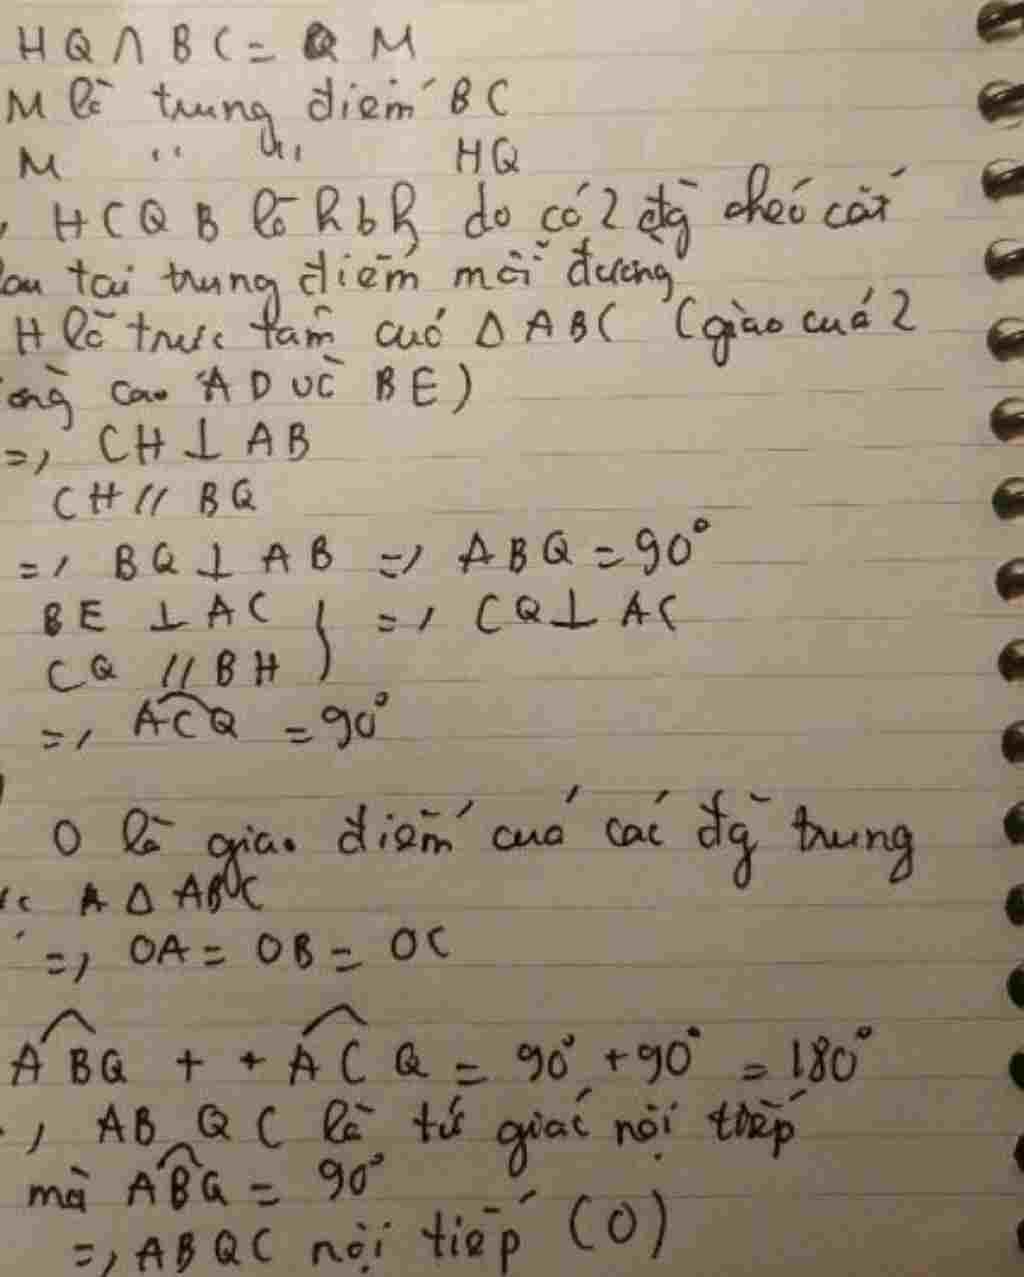 HQ ∩ BC = M
M là trung điểm BC
M " " HQ
, HCQB là hbh do có 2 đg chéo cắt
tại trung điểm mỗi đường
H là trực tâm của Δ ABC (giao của 2
cao AD và BE)
=> CH ⊥ AB
CH // BQ
=> BQ ⊥ AB => ABQ = 90°
BE ⊥ AC } => CQ ⊥ AC
CQ // BH
=> ACQ = 90°
O là giao điểm của các đg trung
Δ ABC
=> OA = OB = OC
ABQ + + ACQ = 90° + 90° = 180°
, ABQC là tứ giác nội tiếp
mà ABQ = 90°
=> ABQC nội tiếp (O)